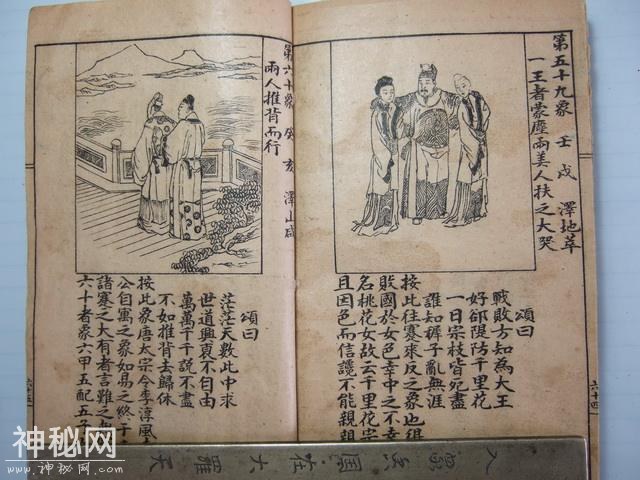 第五十九象 壬戌 澤地萃
一王者蒙塵兩美人扶之大哭
頌曰
戰敗方知為大王
好邰隄防千里花
一日宗枝皆死盡
誰知褲子亂無涯
按此往蹇來反之象也
敗國於女色幸中之不幸
名桃花女故云千里花宗
且因色而信讒不能親親
六十四
第六十象 癸亥 澤山咸
兩人推背而行
頌曰
茫茫天數此中求
世道興衰不自由
萬萬千千說不盡
不如推背去歸休
按此象唐太宗令李淳風
公自寓之象如易之終于
諸蹇之大有者言難之
六十者象六甲五配五子
六十五
神秘网
www.神秘网.com